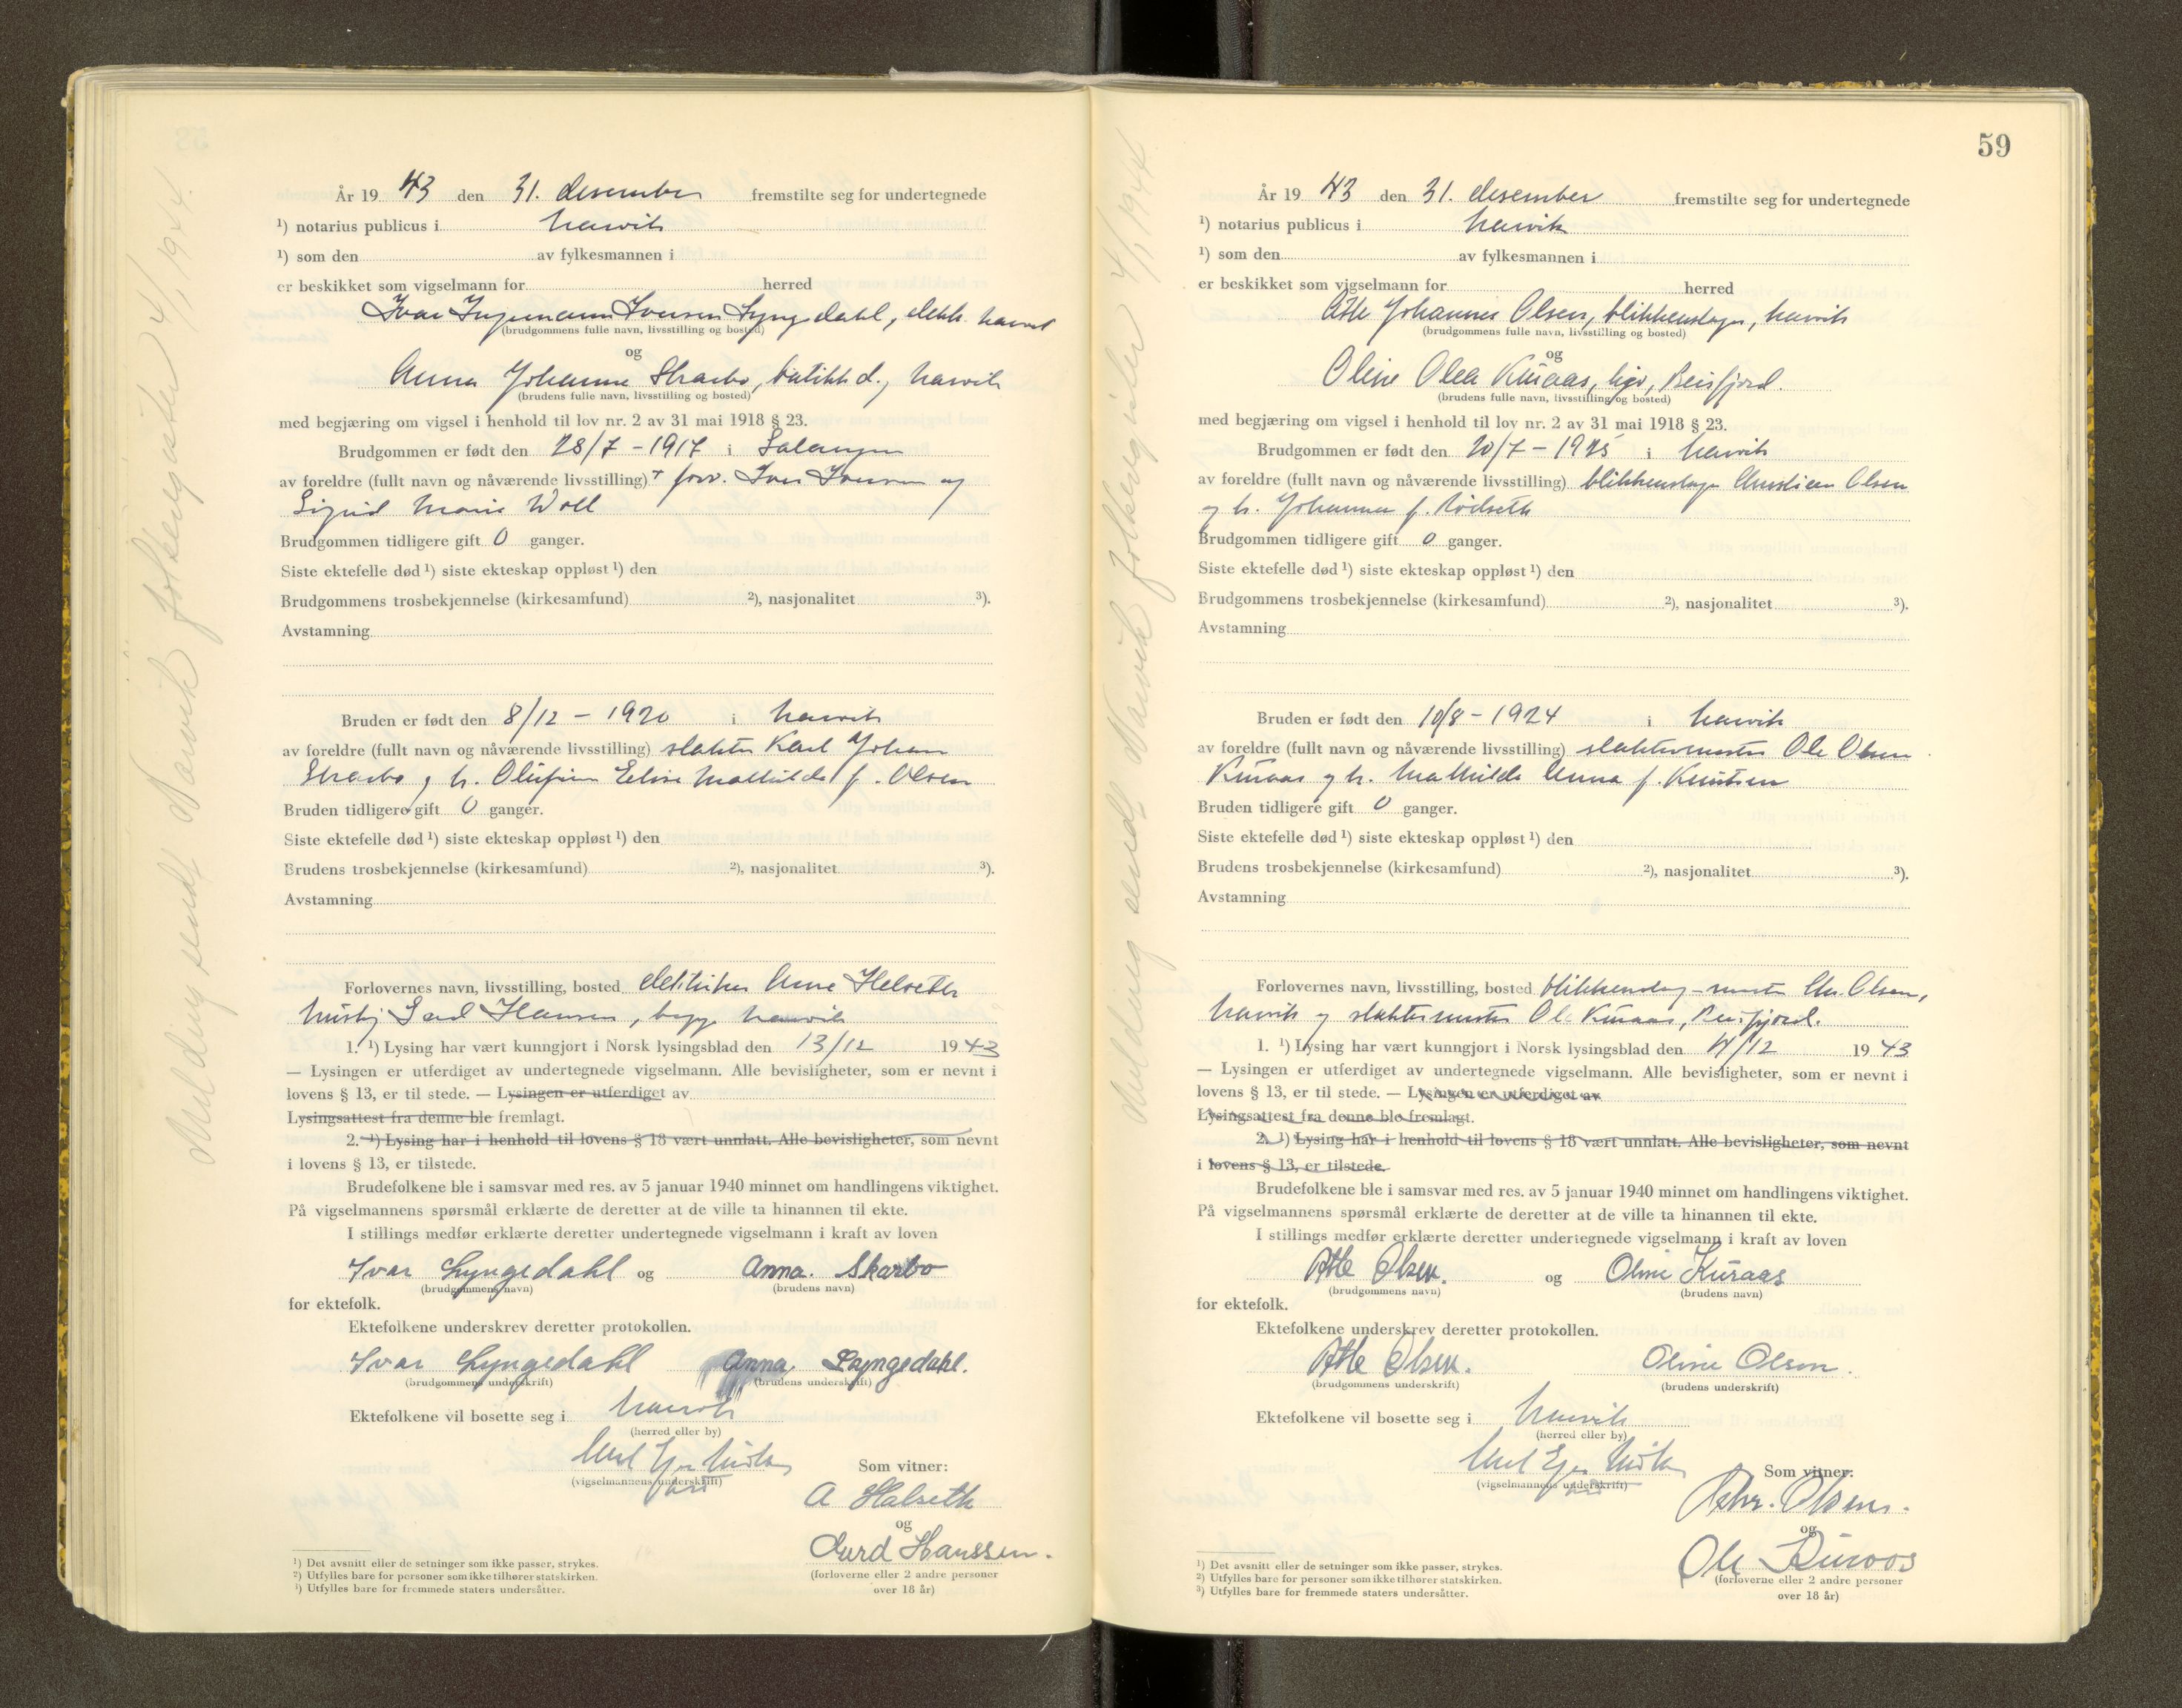 Melding sendt Narvik folkeregister 4/1 1944.
År 1943 den 31. desember fremstilte seg for undertegnede
¹) notarius publicus i Narvik
¹) som den av fylkesmannen i
er beskikket som vigselmann for herred
Ivar Ingemann Iversen Lyngedahl, elektr. Narvik
(brudgommens fulle navn, livsstilling og bosted)
og
Anna Johanne Skarbo, butikkd., Narvik
(brudens fulle navn, livsstilling og bosted)
med begjæring om vigsel i henhold til lov nr. 2 av 31 mai 1918 § 23.
Brudgommen er født den 28/7 - 1917 i Salangen
av foreldre (fullt navn og nåværende livsstilling) forr. Iver Iversen og
Sigrid Marie Woll
Brudgommen tidligere gift 0 ganger.
Siste ektefelle død ¹) siste ekteskap oppløst ¹) den
Brudgommens trosbekjennelse (kirkesamfund) ²), nasjonalitet ³).
Avstamning
Bruden er født den 8/12 - 1920 i Narvik
av foreldre (fullt navn og nåværende livsstilling) slakter Karl Johan
Skarbo og h. Olufine Eline Mathilde f. Olsen
Bruden tidligere gift 0 ganger.
Siste ektefelle død ¹) siste ekteskap oppløst ¹) den
Brudens trosbekjennelse (kirkesamfund) ²), nasjonalitet ³).
Avstamning
Forlovernes navn, livsstilling, bosted elektriker Arne Halseth
Hansen, begge Narvik
1. ¹) Lysing har vært kunngjort i Norsk lysingsblad den 13/12 1943
— Lysingen er utferdiget av undertegnede vigselmann. Alle bevisligheter, som er nevnt i
lovens § 13, er til stede. — Lysingen er utferdiget av
Lysingsattest fra denne ble fremlagt.
2. ¹) Lysing har i henhold til lovens § 18 vært unnlatt. Alle bevisligheter, som nevnt
i lovens § 13, er tilstede.
Brudefolkene ble i samsvar med res. av 5 januar 1940 minnet om handlingens viktighet.
På vigselmannens spørsmål erklærte de deretter at de ville ta hinannen til ekte.
I stillings medfør erklærte deretter undertegnede vigselmann i kraft av loven
Ivar Lyngedahl og Anna. Skarbo
(brudgommens navn) (brudens navn)
for ektefolk.
Ektefolkene underskrev deretter protokollen.
Ivar Lyngedahl Anna. Lyngedahl.
(brudgommens underskrift) (brudens underskrift)
Ektefolkene vil bosette seg i Narvik
(herred eller by)
(vigselmannens underskrift)
Som vitner:
A Halseth
og
Hanssen.
(forloverne eller 2 andre personer
over 18 år)
¹) Det avsnitt eller de setninger som ikke passer, strykes.
²) Utfylles bare for personer som ikke tilhører statskirken.
³) Utfylles bare for fremmede staters undersåtter.
59
Melding sendt Narvik folkeregister 4/1 1944
År 1943 den 31. desember fremstilte seg for undertegnede
¹) notarius publicus i Narvik
¹) som den av fylkesmannen i
er beskikket som vigselmann for herred
Atle Johannes Olsen, blikkenslager, Narvik
(brudgommens fulle navn, livsstilling og bosted)
og
Oline Olea Kuraas, hgv, Beisfjord.
(brudens fulle navn, livsstilling og bosted)
med begjæring om vigsel i henhold til lov nr. 2 av 31 mai 1918 § 23.
Brudgommen er født den 20/7 - 1925 i Narvik
av foreldre (fullt navn og nåværende livsstilling) blikkenslager Christian Olsen
og h. Johanna f. Rødseth
Brudgommen tidligere gift 0 ganger.
Siste ektefelle død ¹) siste ekteskap oppløst ¹) den
Brudgommens trosbekjennelse (kirkesamfund) ²), nasjonalitet ³).
Avstamning
Bruden er født den 10/8 - 1924 i Narvik
av foreldre (fullt navn og nåværende livsstilling) slaktermester Ole Olsen
Kuraas og h. Mathilde Anna f. Knutsen
Bruden tidligere gift 0 ganger.
Siste ektefelle død ¹) siste ekteskap oppløst ¹) den
Brudens trosbekjennelse (kirkesamfund) ²), nasjonalitet ³).
Avstamning
Forlovernes navn, livsstilling, bosted blikkenslag-mester Chr. Olsen,
Narvik og slaktermester Ole Kuraas, Beisfjord.
1. ¹) Lysing har vært kunngjort i Norsk lysingsblad den /12 1943
— Lysingen er utferdiget av undertegnede vigselmann. Alle bevisligheter, som er nevnt i
lovens § 13, er til stede. — Lysingen er utferdiget av
Lysingsattest fra denne ble fremlagt.
2. ¹) Lysing har i henhold til lovens § 18 vært unnlatt. Alle bevisligheter, som nevnt
i lovens § 13, er tilstede.
Brudefolkene ble i samsvar med res. av 5 januar 1940 minnet om handlingens viktighet.
På vigselmannens spørsmål erklærte de deretter at de ville ta hinannen til ekte.
I stillings medfør erklærte deretter undertegnede vigselmann i kraft av loven
Atle Olsen. og Oline Kuraas
(brudgommens navn) (brudens navn)
for ektefolk.
Ektefolkene underskrev deretter protokollen.
Atle Olsen. Oline Olsen.
(brudgommens underskrift) (brudens underskrift)
Ektefolkene vil bosette seg i Narvik
(herred eller by)
(vigselmannens underskrift)
Som vitner:
Chr. Olsen.
og
Ole Kuraas
(forloverne eller 2 andre personer
over 18 år)
¹) Det avsnitt eller de setninger som ikke passer, strykes.
²) Utfylles bare for personer som ikke tilhører statskirken.
³) Utfylles bare for fremmede staters undersåtter.